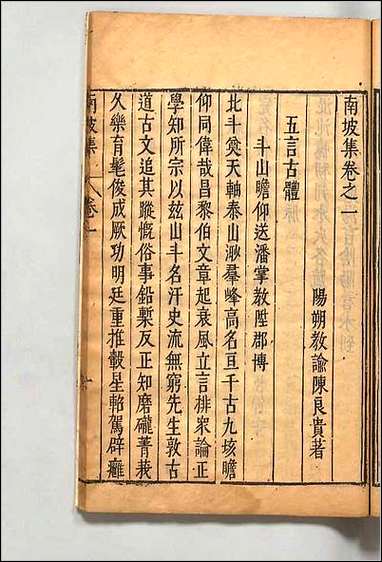 南坡集卷之一
陽朔教諭陳良貴著
五言古體
斗山瞻仰送潘掌教陞郡博
北斗奠天軸泰山邈羣峰高名亘千古九垓瞻
仰同偉哉昌黎伯文章起衰風立言排衆論正
學知所宗以茲山斗名汗史流無窮先生敦古
道古文追其蹤慨俗事鉛槧反正知磨礲菁莪
久樂育髦俊成厥功明廷重推轂星軺駕辟雍
南坡集
卷一